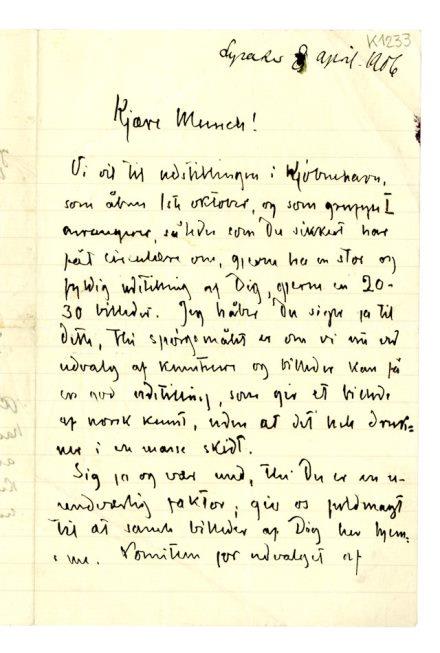 K1233
Lysaker 8 april. 1906
Kjære Munch!
Vi vil til udstillingen i Kjöbenhavn,
som åbnes 1ste oktober, og som gruppe I
arrangerer, således som Du sikkert har
fåt circulære om, gjerne ha en stor og
fyldig udstilling af Dig, gjerne en 20-
30 billeder. Jeg håber Du siger ja til
dette, thi spörgsmålet er om vi nu ved
udvalg af kunstnere og billeder kan få
en god udstilling, som gir et billede
af norsk kunst, uden at det hele druk-
ner i en masse skidt.
Sig ja og vær med, thi Du er en u-
nendværlig faktor, giv os fuldmagt
til at samle billeder af Dig her hjem-
me. Komiteen for udvalget af